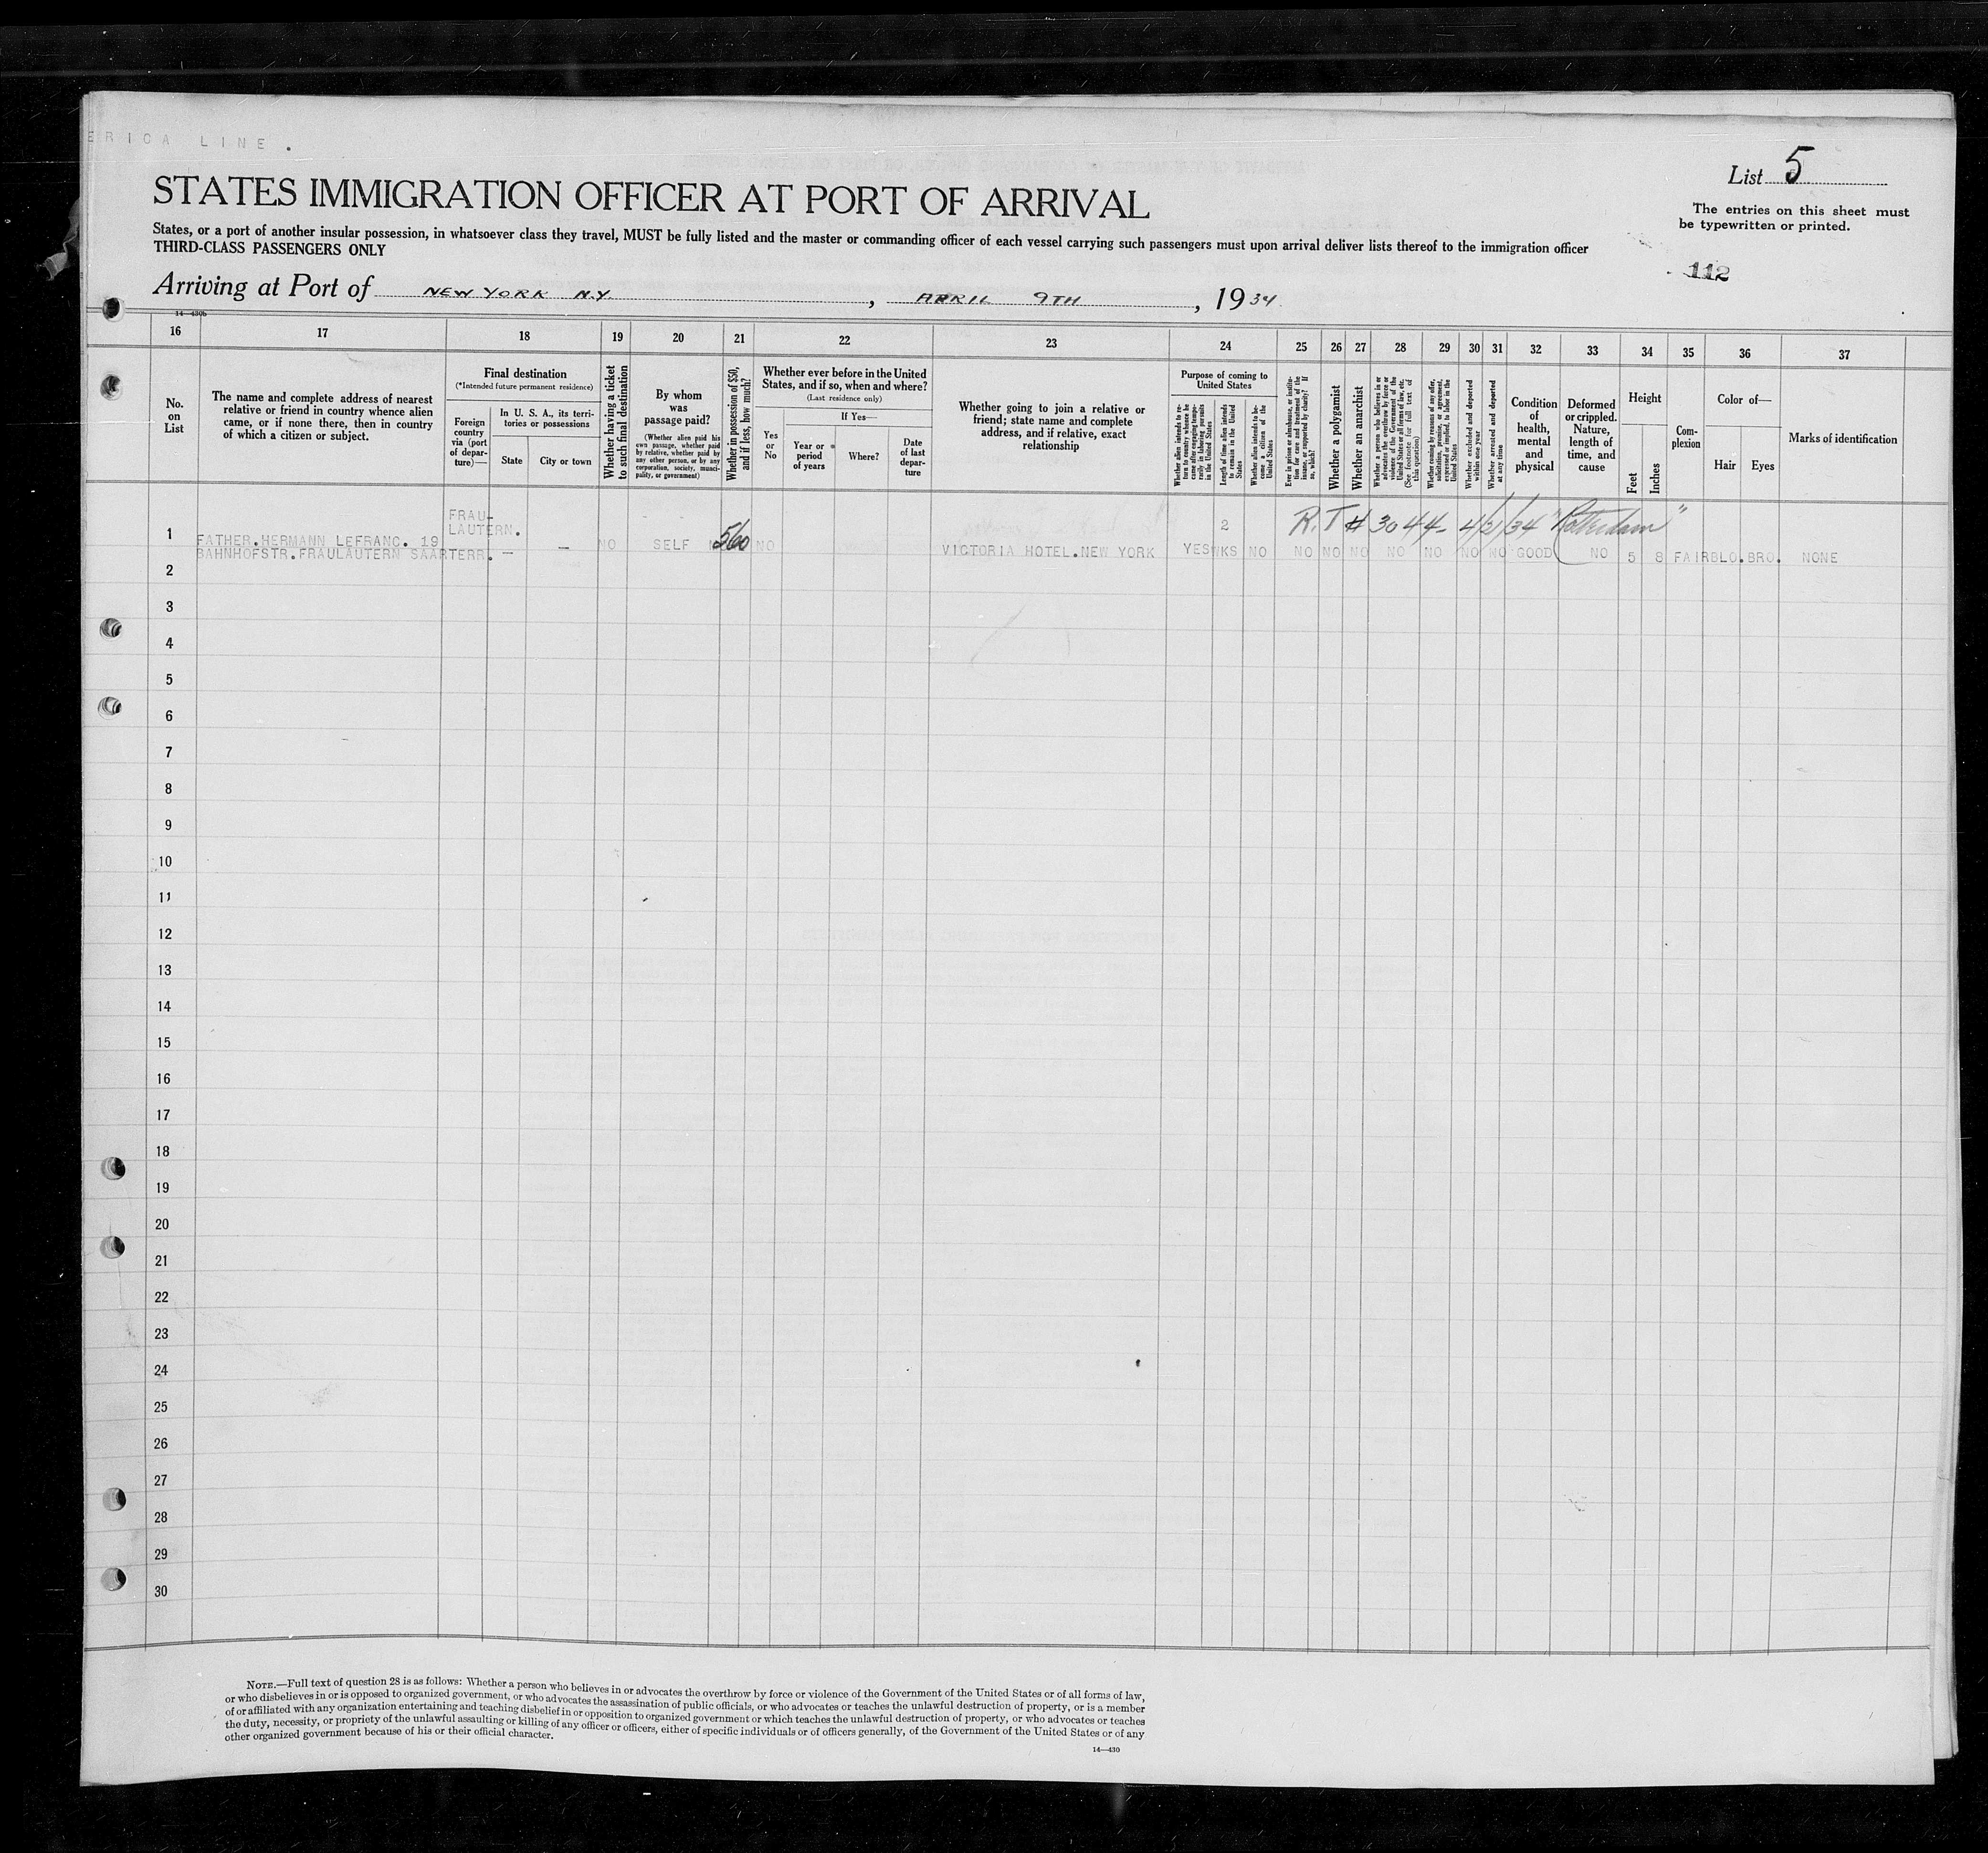 ERICA LINE.
List 5
STATES IMMIGRATION OFFICER AT PORT OF ARRIVAL
The entries on this sheet must
be typewritten or printed.
States, or a port of another insular possession, in whatsoever class they travel, MUST be fully listed and the master or commanding officer of each vessel carrying such passengers must upon arrival deliver lists thereof to the immigration officer
THIRD-CLASS PASSENGERS ONLY
112
Arriving at Port of NEW YORK N.Y. , APRIL 9TH , 1934
14—430b
16 17 18 19 20 21 22 23 24 25 26 27 28 29 30 31 32 33 34 35 36 37
No.
on
List
The name and complete address of nearest
relative or friend in country whence alien
came, or if none there, then in country
of which a citizen or subject.
Final destination
(*Intended future permanent residence)
Foreign
country
via (port
of depar-
ture)—
In U. S. A., its terri-
tories or possessions
State
City or town
Whether having a ticket
to such final destination
By whom
was
passage paid?
(Whether alien paid his
own passage, whether paid
by relative, whether paid by
any other person, or by any
corporation, society, munici-
pality, or government)
Whether in possession of $50,
and if less, how much?
Whether ever before in the United
States, and if so, when and where?
(Last residence only)
Yes
or
No
If Yes—
Year or
period
of years
Where?
Date
of last
depar-
ture
Whether going to join a relative or
friend; state name and complete
address, and if relative, exact
relationship
Purpose of coming to
United States
Whether alien intends to re-
turn to country whence he
came after engaging tempo-
rarily in laboring pursuits
in the United States
Length of time alien intends
to remain in the United
States
Whether alien intends to be-
come a citizen of the
United States
Ever in prison or almshouse, or institu-
tion for care and treatment of the
insane, or supported by charity? If
so, which?
Whether a polygamist
Whether an anarchist
Whether a person who believes in or
advocates the overthrow by force or
violence of the Government of the
United States or all forms of law, etc.
(See footnote for full text of
this question)
Whether coming by reason of any offer,
solicitation, promise, or agreement,
expressed or implied, to labor in the
United States
Whether excluded and deported
within one year
Whether arrested and deported
at any time
Condition
of
health,
mental
and
physical
Deformed
or crippled.
Nature,
length of
time, and
cause
Height
Feet
Inches
Com-
plexion
Color of—
Hair
Eyes
Marks of identification
FRAU-
LAUTERN.
2 R.T # 3044- 4/21/34 "Rotterdam"
1 FATHER.HERMANN LEFRANC. 19
BAHNHOFSTR.FRAULAUTERN SAARTERR. — — NO SELF 560 NO VICTORIA HOTEL.NEW YORK YES WKS NO NO NO NO NO NO NO NO GOOD NO 5 8 FAIR BLO. BRO. NONE
2
3
4
5
6
7
8
9
10
11
12
13
14
15
16
17
18
19
20
21
22
23
24
25
26
27
28
29
30
NOTE.—Full text of question 28 is as follows: Whether a person who believes in or advocates the overthrow by force or violence of the Government of the United States or of all forms of law,
or who disbelieves in or is opposed to organized government, or who advocates the assassination of public officials, or who advocates or teaches the unlawful destruction of property, or is a member
of or affiliated with any organization entertaining and teaching disbelief in or opposition to organized government or which teaches the unlawful destruction of property, or who advocates or teaches
the duty, necessity, or propriety of the unlawful assaulting or killing of any officer or officers, either of specific individuals or of officers generally, of the Government of the United States or of any
other organized government because of his or their official character.
14—430